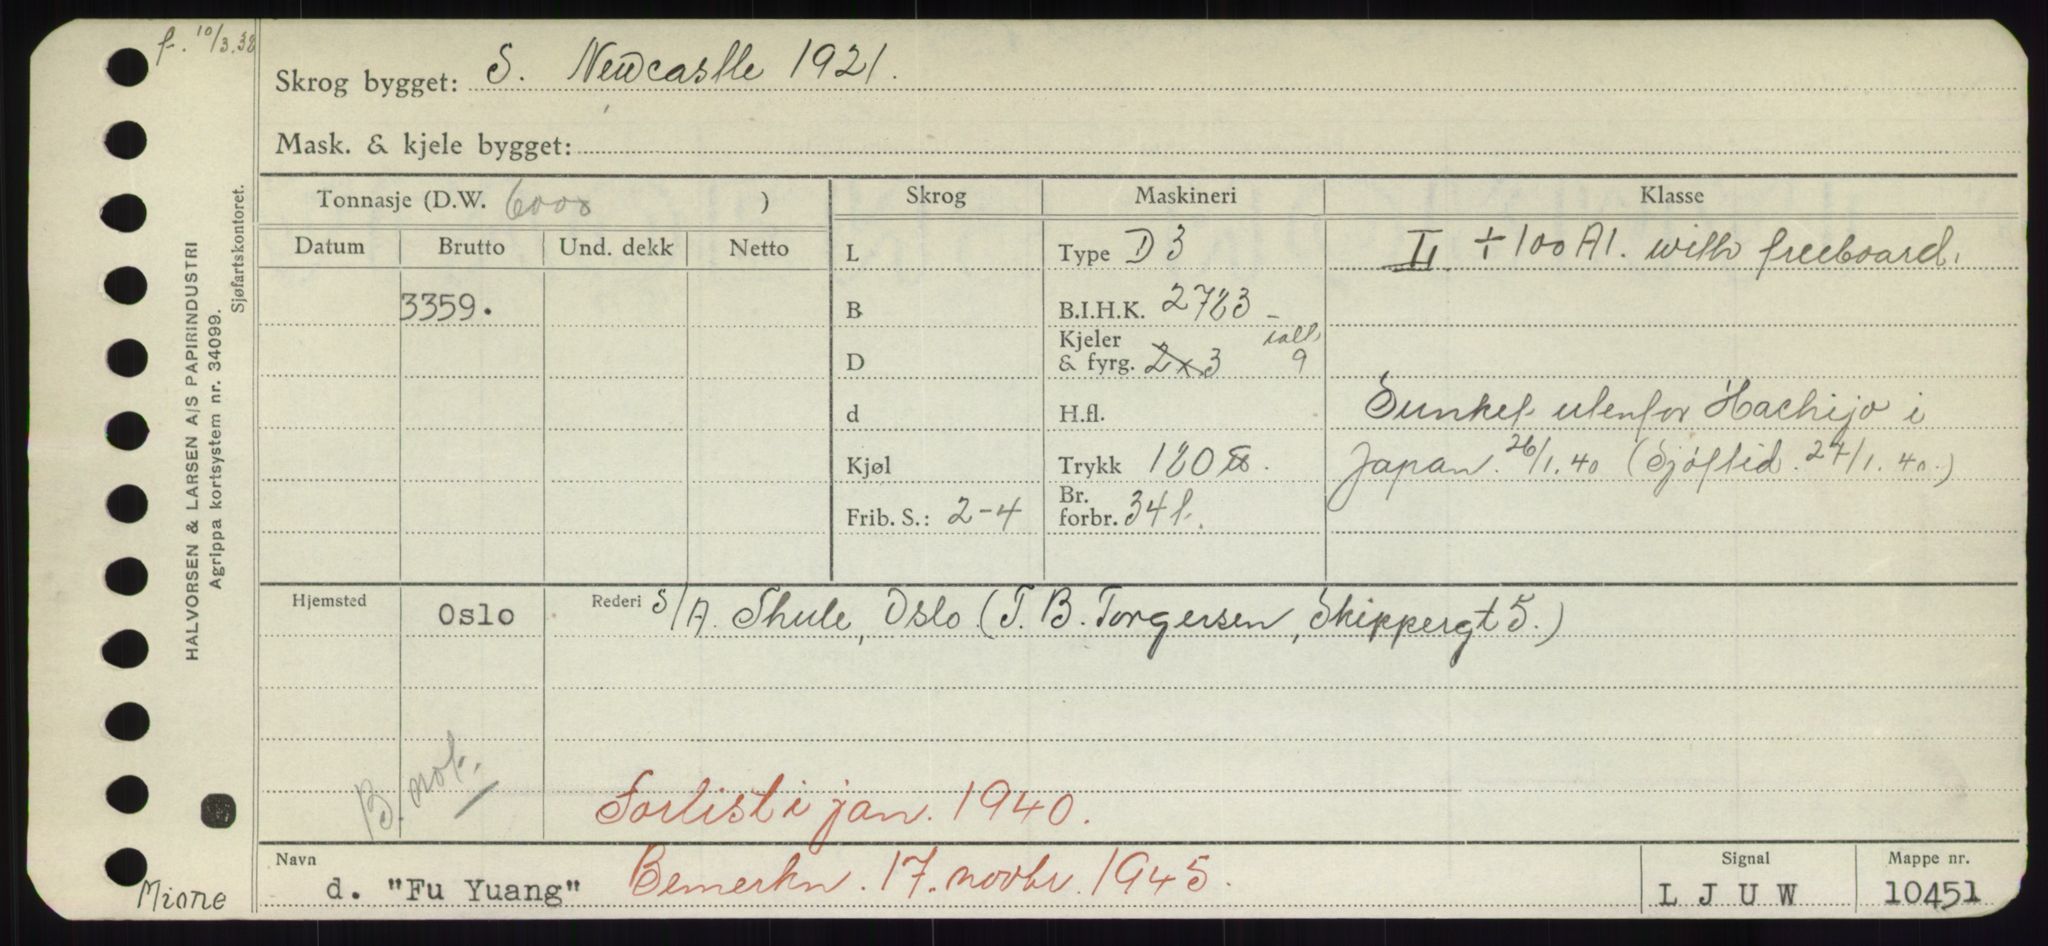 f. 10/3.38
Skrog bygget: S. Newcastle 1921.
Mask. & kjele bygget:
Tonnasje (D.W. 6000 )
Skrog
Maskineri
Klasse
Datum Brutto Und. dekk Netto
L
Type D 3
II ÷ 100 A1. with freeboard.
3359.
B
B.I.H.K. 2723
D
Kjeler
& fyrg. 2x3 ialt 9
d
H.fl.
Sunket utenfor Hachijo i
Kjøl
Trykk 180 lb.
Japan. 26/1.40 (Sjøftid. 27/1.40.)
Frib. S.: 2-4
Br.
forbr. 34 t.
Hjemsted Oslo
Rederi S/A. Thule, Oslo (T. B. Torgersen, Skippergt 5.)
B. not.
Forlist i jan. 1940.
Navn d. "Fu Yuang"
Bemerkn. 17. novbr. 1945.
Signal
LJUW
Mappe nr.
10451
Mione
HALVORSEN & LARSEN A/S PAPIRINDUSTRI
Agrippa kortsystem nr. 34099.
Sjøfartskontoret.